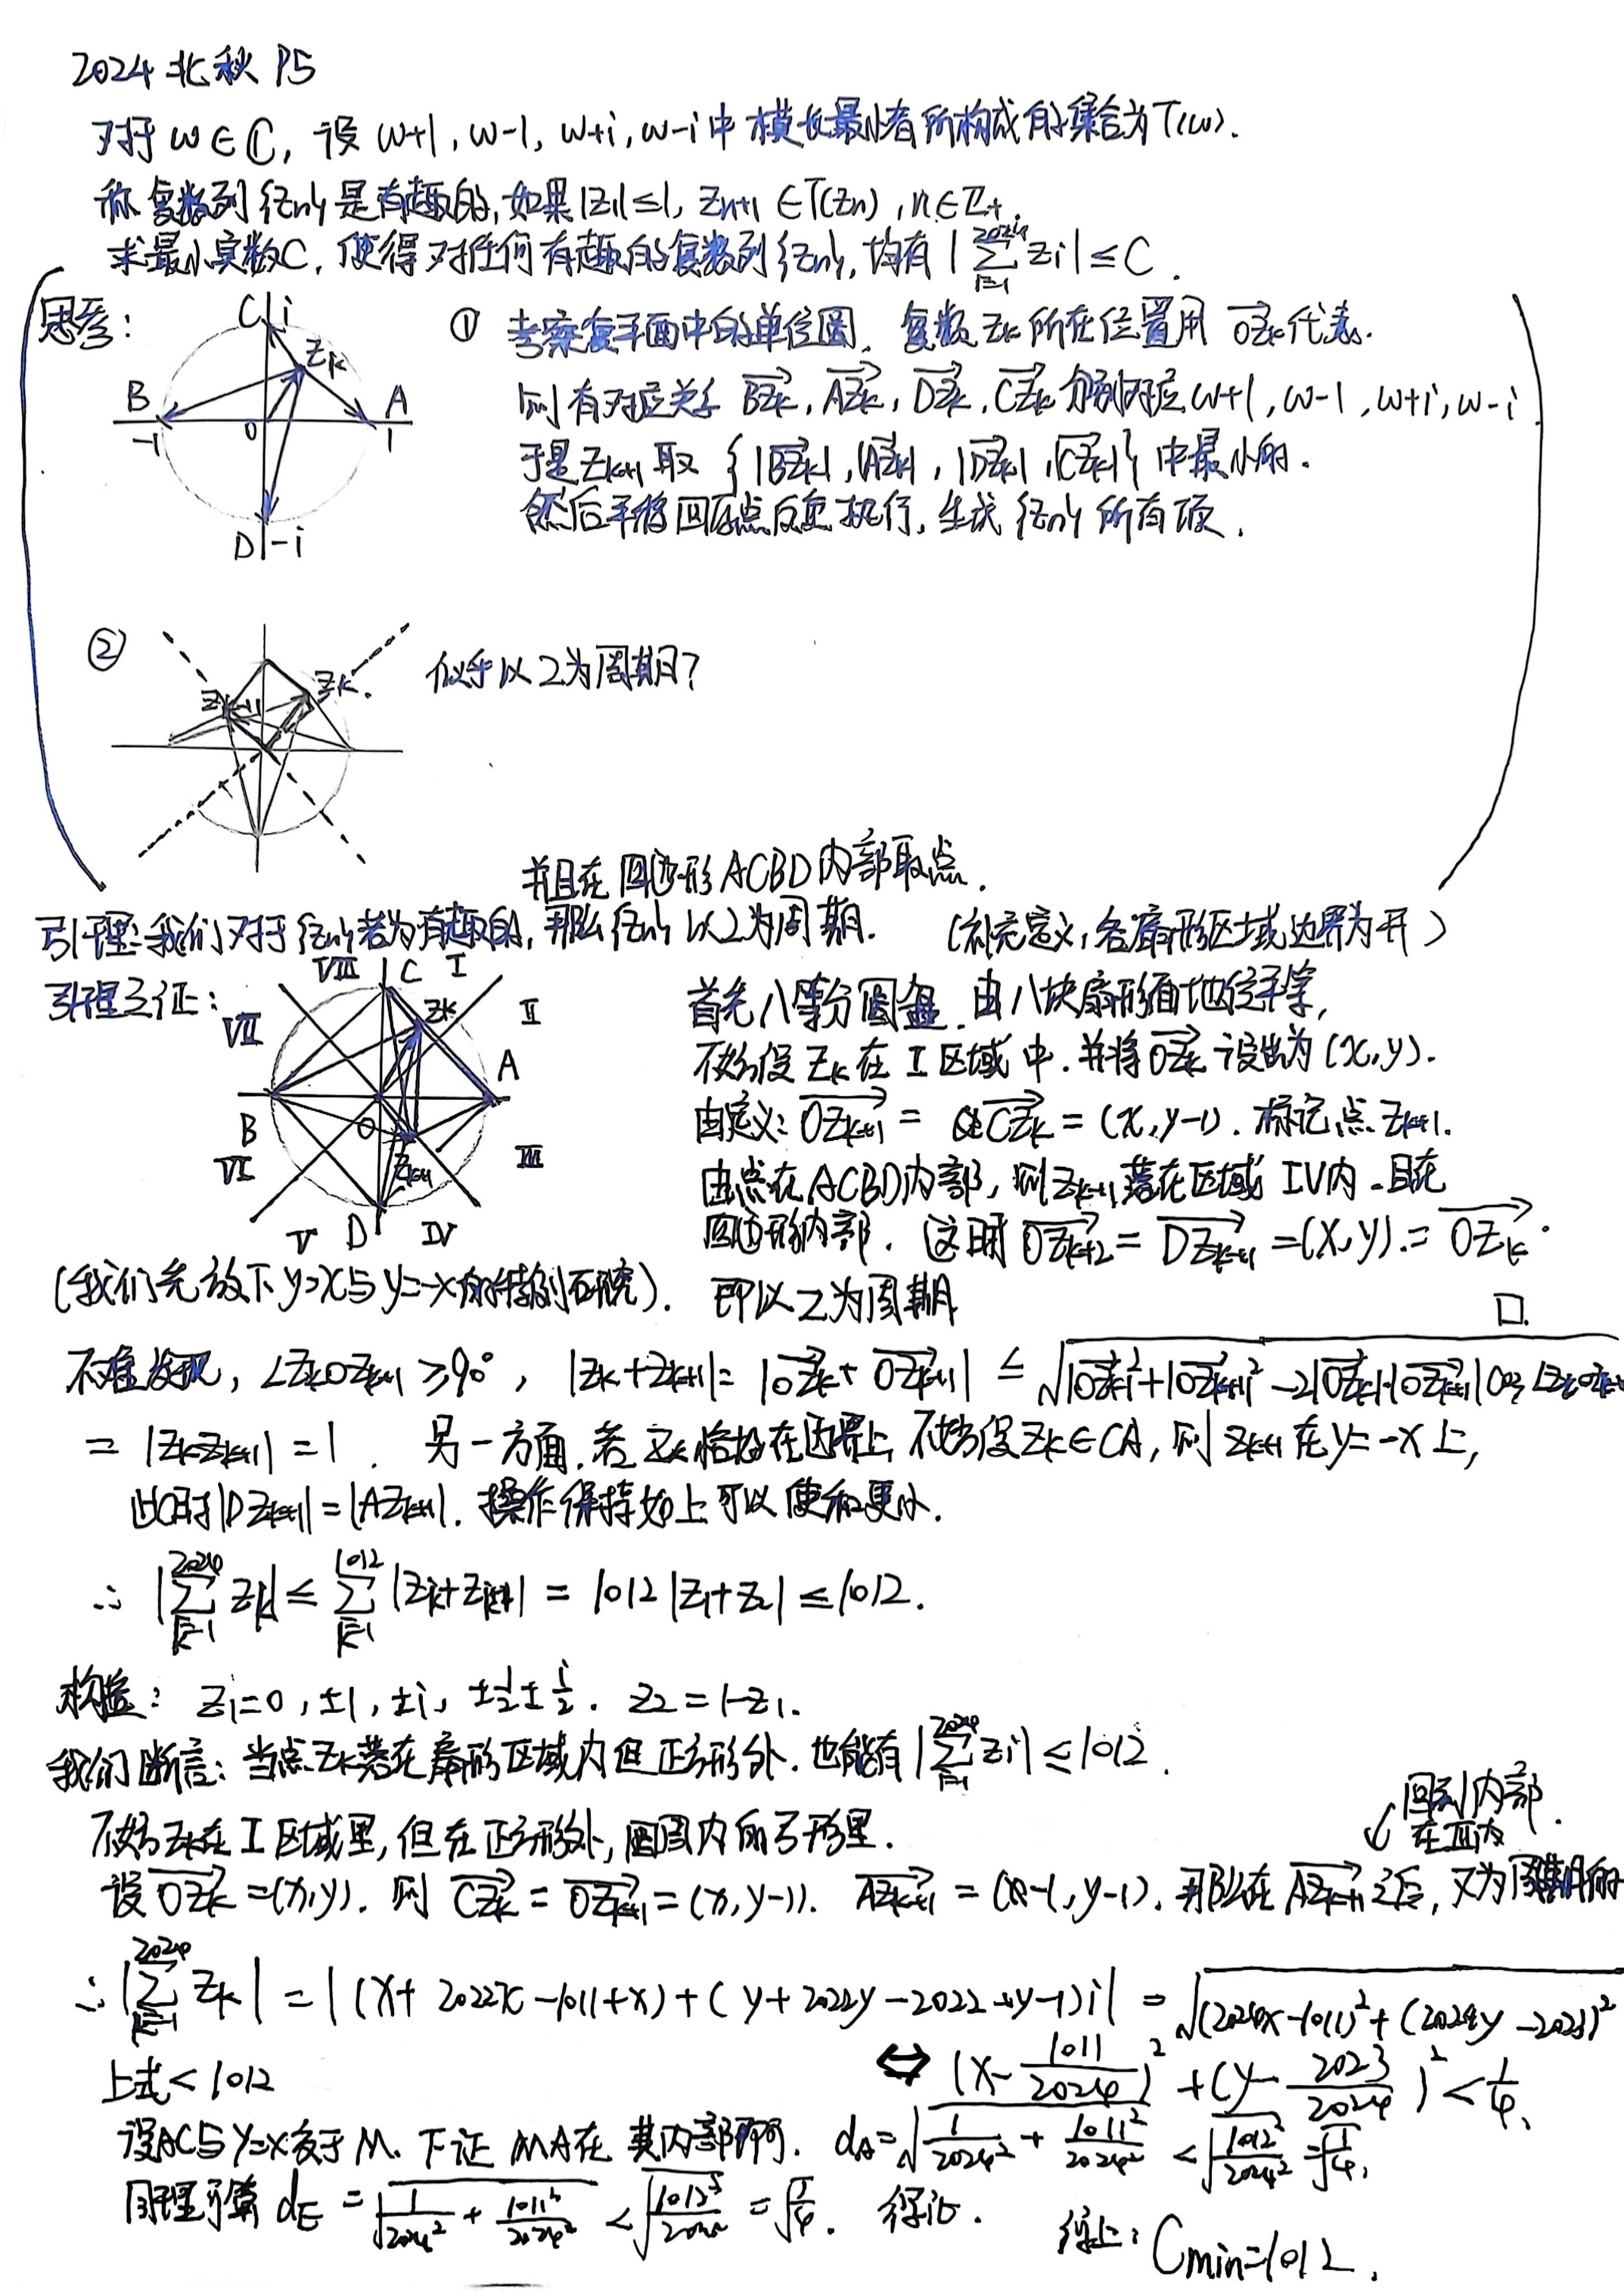 2024 北秋 P5
对于 ω∈ℂ, 设 ω+1, ω-1, ω+i, ω-i 中模长最小者所构成的集合为 T(ω).
称复数列 {zn} 是有趣的, 如果 |z1|≤1, zn+1∈T(zn), n∈Z+.
求最小实数C, 使得对任何有趣的复数列{zn}, 均有 |∑_{i=1}^{2024} zi| ≤ C.
思考:
C i
Zk
B
A
-1
0
1
D -i
① 考察复平面中的单位圆. 复数 Zk 所在位置用 OZk 代表.
则有对应关系 BZk, AZk, DZk, CZk 分别对应 ω+1, ω-1, ω+i, ω-i
于是 Zk+1 取 {|BZk|, |AZk|, |DZk|, |CZk|} 中最小的.
然后平移回原点反复执行, 生成 {zn} 所有项.
②
Zk+1
Zk.
似乎以2为周期?
并且在四边形ACBD内部取点.
引理: 我们对于{zn}若为有趣的, 那么{zn}以2为周期. (补充定义, 各扇形区域边界为开)
引理之证:
VIII C I
VII
Zk
II
A
B
O
VI
Zk+1
III
V D IV
首先八等分圆盘. 由八块扇形面地位平等,
不妨设 Zk 在 I 区域中. 并将 OZk 设出为 (x,y).
由定义: OZk+1 = CZk = (x, y-1). 标记点 Zk+1.
由点在ACBD内部, 则Zk+1落在区域 IV内. 且在
四边形内部. 这时 OZk+2 = DZk+1 = (x,y) = OZk.
(我们先放下 y=x与 y=-x的特别研究). 即以2为周期
□.
不难发现, ∠ZkOZk+1 ≥90°, |Zk+Zk+1| = |OZk + OZk+1| ≤ √(|OZk|²+|OZk+1|²-2|OZk|·|OZk+1|cos∠ZkOZk+1
= |ZkZk+1| = 1. 另一方面, 若 Zk恰好在边界上, 不妨设Zk∈CA, 则 Zk+1 在 y=-x 上,
此时|DZk+1|=|AZk+1|. 操作保持如上可以使和更小.
∴ |∑_{k=1}^{2024} Zk| ≤ ∑_{k=1}^{1012} |Zk+Zk+1| = 1012 |Z1+Z2| ≤ 1012.
构造: Z1=0, ±1, ±i, ±1/2±i/2. Z2=1-Z1.
我们断言: 当点Zk落在扇形区域内但正方形外. 也能有 |∑_{i=1}^{2024} zi| ≤1012.
回到内部.
在III内
不妨Zk在 I 区域里, 但在正方形外, 圆内的弓形里.
设 OZk =(x,y). 则 CZk = OZk+1 = (x, y-1). AZk+1 = (x-1, y-1). 那么在 AZk+1 之后, 又为周期的
∴ |∑_{k=1}^{2024} Zk| = |(x+2022x-1011+x)+(y+2022y-2022+y-1)i| = √((2024x-1011)²+(2024y-2023)²
上式<1012 ⇔ (x-1011/2024)²+(y-2023/2024)²<1/4.
设AC与y=x交于M. 下证 MA在其内部即可. dA=√(1/2024²+1011²/2024²) < √(1012²/2024²) = √(1/4).
同理可算 dE = √(1/2024²+1011²/2024²) < √(1012²/2024²) = √(1/4). 得证.
综上: Cmin=1012.